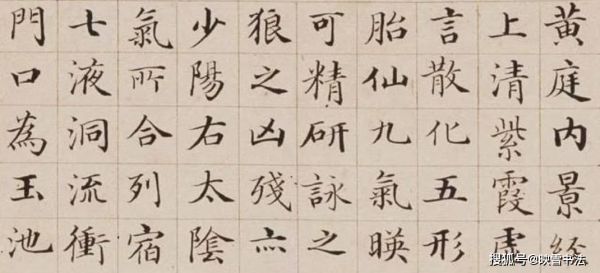 黄庭内景經
上清紫霞虛
言散化五形
胎仙九氣暎
可精研詠之
狼之凶殘亦
少陽右太陰
氣所合列宿
七液洞流衝
門口為玉池
搜狐号@映雪书法